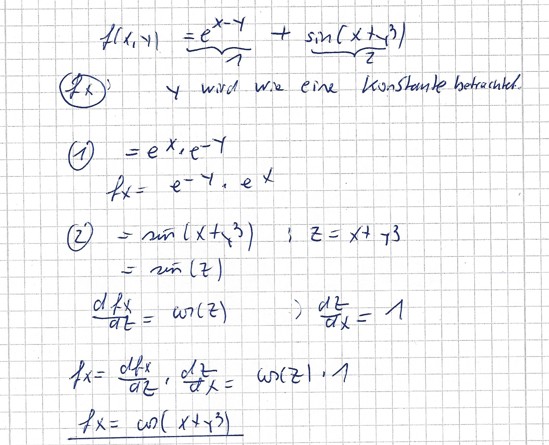 f(x,y) = e^(x-y) + sin(x+y³)
1 2
fx: y wird wie eine Konstante betrachtet.
① = e^x · e^-y
fx = e^-y · e^x
② = sin(x+y³) ; z = x+y³
= sin(z)
dfx/dz = cos(z) ; dz/dx = 1
fx = dfx/dz · dz/dx = cos(z) · 1
fx = cos(x+y³)